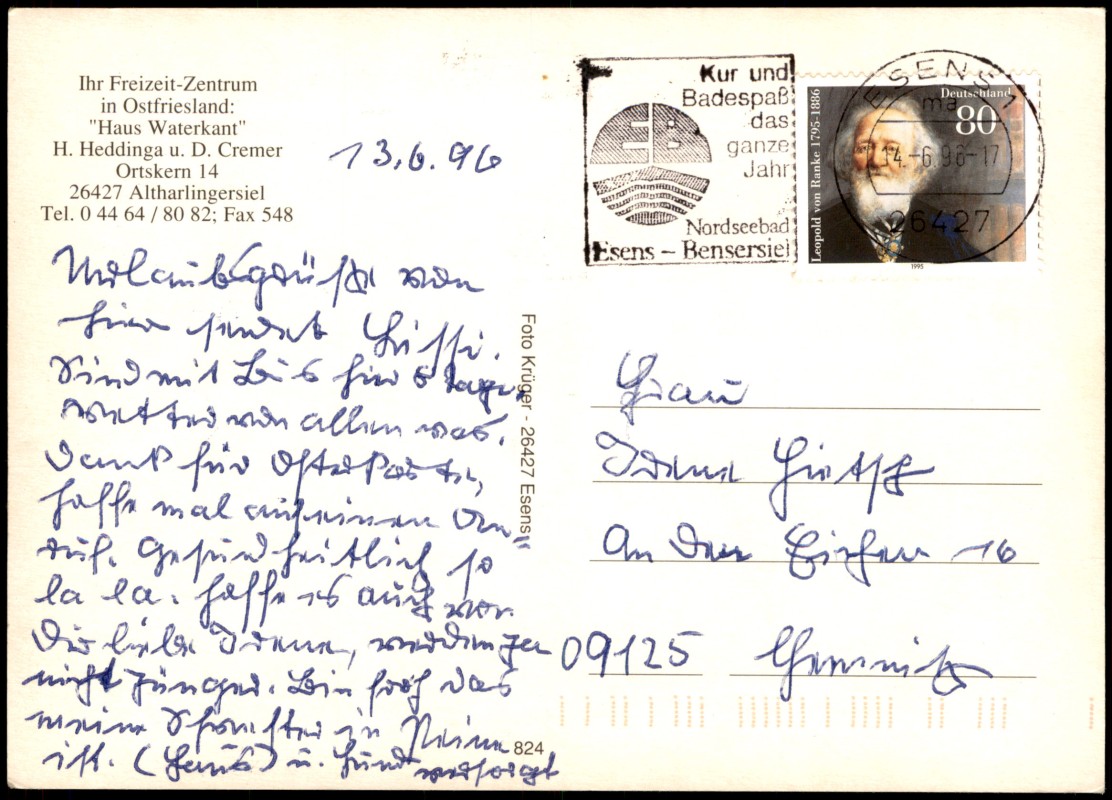 Ihr Freizeit-Zentrum
in Ostfriesland:
"Haus Waterkant"
H. Heddinga u. D. Cremer
Ortskern 14
26427 Altharlingersiel
Tel. 0 44 64 / 80 82; Fax 548
13.6.96
Urlaubsgrüße von
hier sendet
Sind mit Bus hier 8 Tage,
Wetter von allem was.
Dank für Osterkarte,
hoffe mal auf einen An=
ruf. Gesundheitlich so
la la. Hoffe es auch von
Dir liebe Irene, werden ja
nicht jünger. Bin froh das
meine Schwester in Peine
ist. (Haus) u. Hund versorgt
Foto Krüger - 26427 Esens
824
Kur und
Badespaß
das
ganze
Jahr
Nordseebad
Esens – Bensersiel
Leopold von Ranke 1795-1886
Deutschland
80
1995
ESENS 1
ma
14.-6.96-17
26427
Frau
Irene
An den Eichen 16
09125 Chemnitz